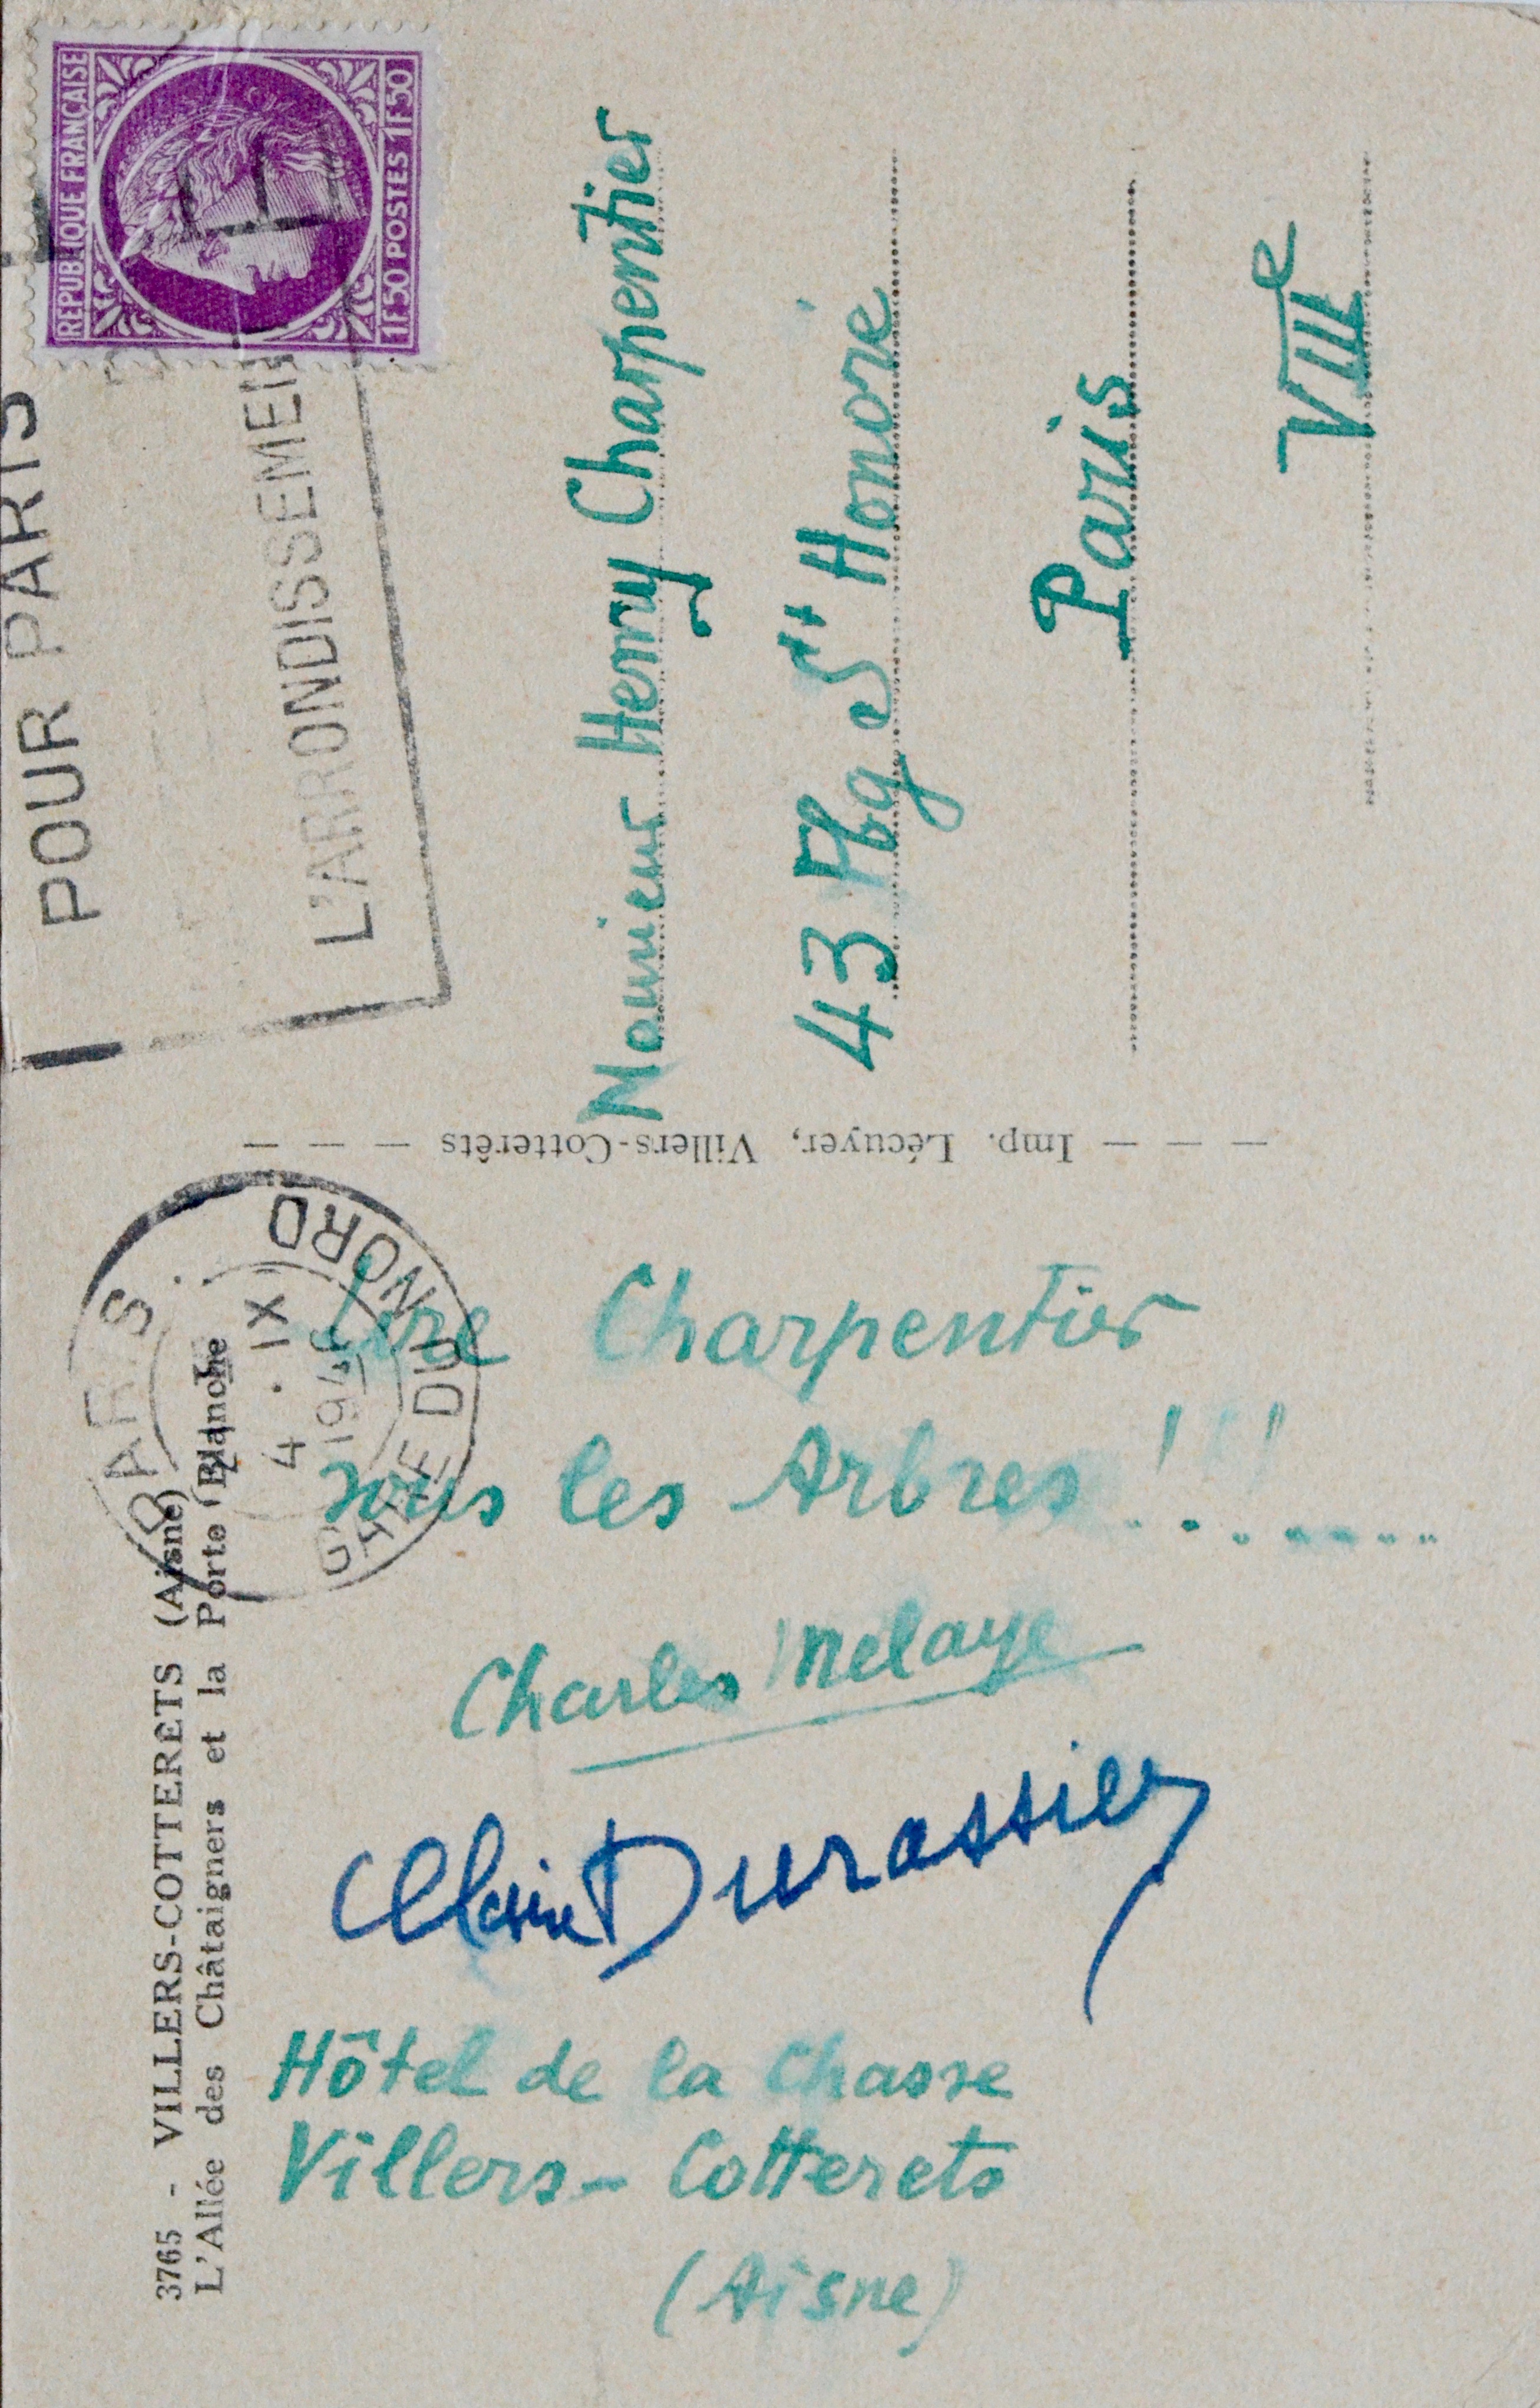 3765 - VILLERS-COTTERETS (Aisne)
L'Allée des Châtaigners et la Porte Blanche
Lire Charpentier
sous les Arbres !!!
Charles Melaye
Claire Durassier
Hôtel de la Chasse
Villers-Cotterets
(Aisne)
Imp. Lécuyer, Villers-Cotterêts
PARIS
GARE DU NORD
4. IX
POUR PARIS
L'ARRONDISSEMEN
REPUBLIQUE FRANÇAISE
1F50 POSTES 1F50
Monsieur Henry Charpentier
43 Fbg St Honoré
Paris
VIIIe